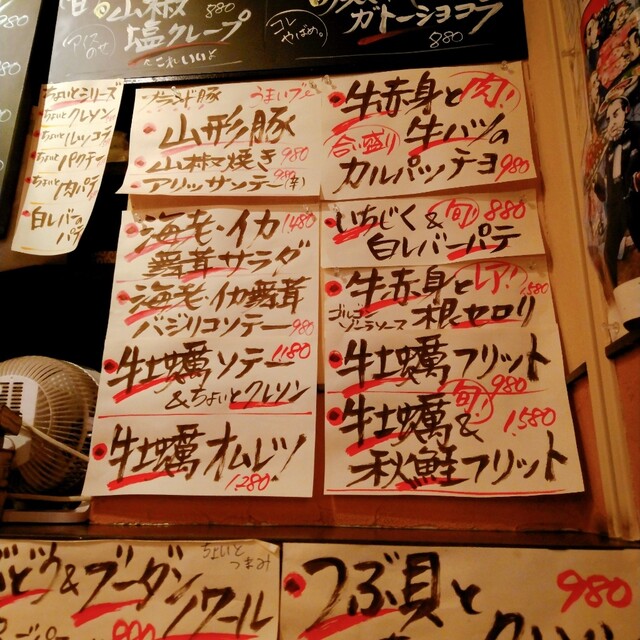 山椒 880
塩クレープ
コレ
やばめ。
ガトーショコラ
880
ちょいとシリーズ
ちょいとクレソン
ちょいと肉パテ
白レバーの
パテ
ブランド豚
うまいブー
山形豚
山椒焼き 980
アリッサソテー(辛) 980
海老・イカ 1,480
舞茸サラダ
海老・イカ舞茸
バジリコソテー 980
牡蠣ソテー 1,180
&ちょいとクレソン
牡蠣オムレツ
1,280
牛赤身と肉!
合い盛り 牛ハツの
カルパッチョ 980
いちじく& 旬! 880
白レバーパテ
牛赤身とレア! 1,580
ゴルゴンゾーラソース 根セロリ
牡蠣フリット
980
牡蠣& 旬! 1,580
秋鮭フリット
ぶどう&ブーダン
ノワール
ちょいと
つまみ
つぶ貝と 980